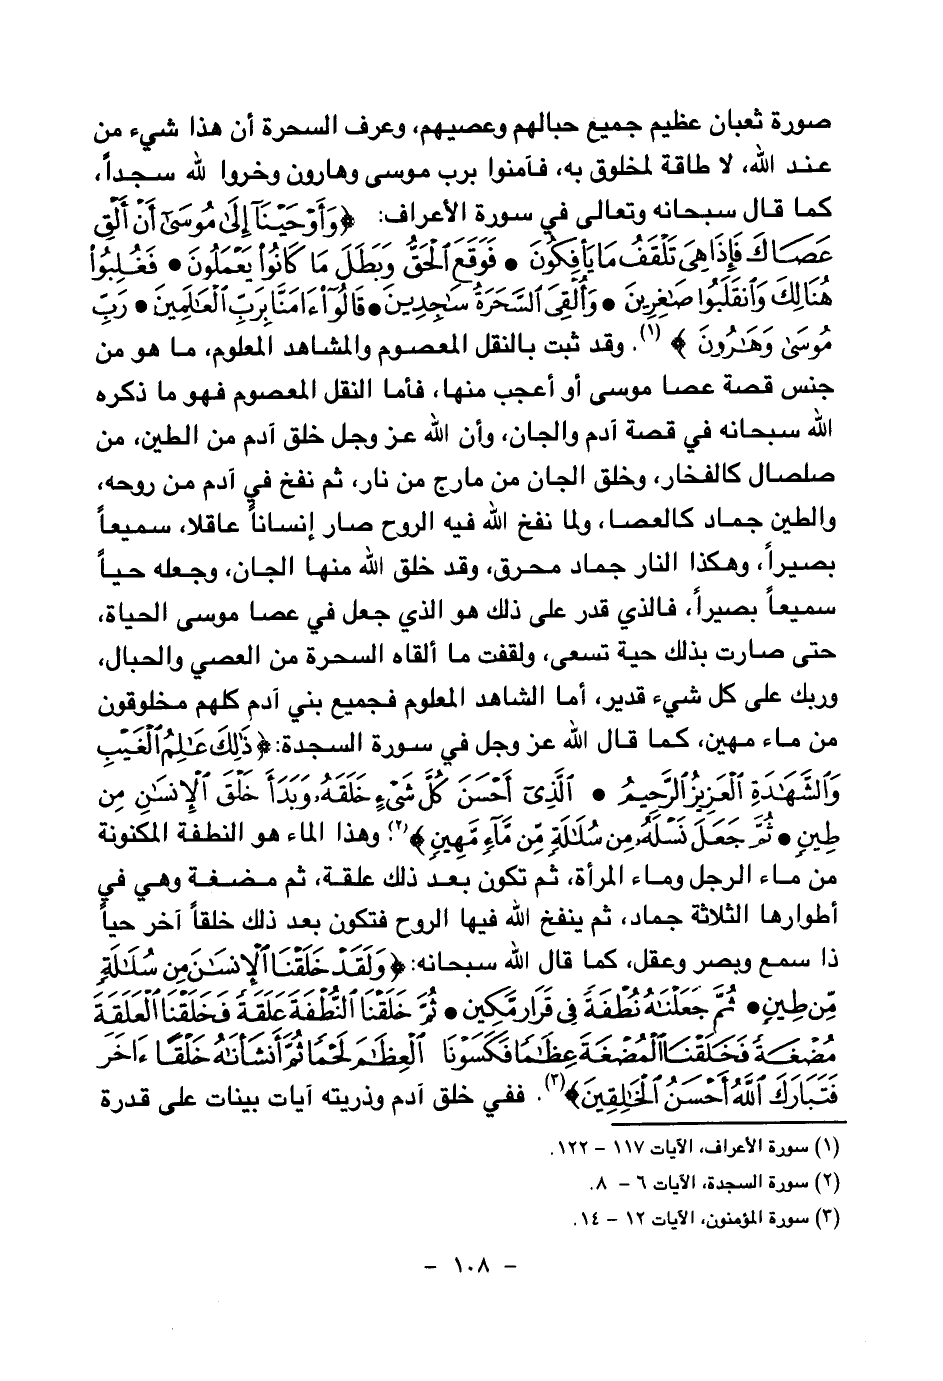 صورة ثعبان عظيم جميع حبالهم وعصيهم، وعرف السحرة أن هذا شيء من
عند الله، لا طاقة لمخلوق به، فآمنوا برب موسى وهارون وخروا لله سجداً،
كما قال سبحانه وتعالى في سورة الأعراف: ﴿وَأَوْحَيْنَآ إِلَىٰ مُوسَىٰٓ أَنْ أَلْقِ
عَصَاكَ فَإِذَا هِيَ تَلْقَفُ مَا يَأْفِكُونَ • فَوَقَعَ ٱلْحَقُّ وَبَطَلَ مَا كَانُوا۟ يَعْمَلُونَ • فَغُلِبُوا۟
هُنَالِكَ وَٱنقَلَبُوا۟ صَٰغِرِينَ • وَأُلْقِيَ ٱلسَّحَرَةُ سَٰجِدِينَ • قَالُوٓا۟ ءَامَنَّا بِرَبِّ ٱلْعَٰلَمِينَ • رَبِّ
مُوسَىٰ وَهَٰرُونَ ﴾ (١). وقد ثبت بالنقل المعصوم والمشاهد المعلوم، ما هو من
جنس قصة عصا موسى أو أعجب منها، فأما النقل المعصوم فهو ما ذكره
الله سبحانه في قصة آدم والجان، وأن الله عز وجل خلق آدم من الطين، من
صلصال كالفخار، وخلق الجان من مارج من نار، ثم نفخ في آدم من روحه،
والطين جماد كالعصا، ولما نفخ الله فيه الروح صار إنساناً عاقلا، سميعاً
بصيراً، وهكذا النار جماد محرق، وقد خلق الله منها الجان، وجعله حياً
سميعاً بصيراً، فالذي قدر على ذلك هو الذي جعل في عصا موسى الحياة،
حتى صارت بذلك حية تسعى، ولقفت ما ألقاه السحرة من العصي والحبال،
وربك على كل شيء قدير، أما الشاهد المعلوم فجميع بني آدم كلهم مخلوقون
من ماء مهين، كما قال الله عز وجل في سورة السجدة: ﴿ذَٰلِكَ عَٰلِمُ ٱلْغَيْبِ
وَٱلشَّهَٰدَةِ ٱلْعَزِيزُ ٱلرَّحِيمُ • ٱلَّذِىٓ أَحْسَنَ كُلَّ شَىْءٍ خَلَقَهُۥ وَبَدَأَ خَلْقَ ٱلْإِنسَٰنِ مِن
طِينٍ • ثُمَّ جَعَلَ نَسْلَهُۥ مِن سُلَٰلَةٍ مِّن مَّآءٍ مَّهِينٍ ﴾(٢)؛ وهذا الماء هو النطفة المكنونة
من ماء الرجل وماء المرأة، ثم تكون بعد ذلك علقة، ثم مضغة وهي في
أطوارها الثلاثة جماد، ثم ينفخ الله فيها الروح فتكون بعد ذلك خلقاً آخر حياً
ذا سمع وبصر وعقل، كما قال الله سبحانه: ﴿وَلَقَدْ خَلَقْنَا ٱلْإِنسَٰنَ مِن سُلَٰلَةٍ
مِّن طِينٍ • ثُمَّ جَعَلْنَٰهُ نُطْفَةً فِى قَرَارٍ مَّكِينٍ • ثُمَّ خَلَقْنَا ٱلنُّطْفَةَ عَلَقَةً فَخَلَقْنَا ٱلْعَلَقَةَ
مُضْغَةً فَخَلَقْنَا ٱلْمُضْغَةَ عِظَٰمًا فَكَسَوْنَا ٱلْعِظَٰمَ لَحْمًا ثُمَّ أَنشَأْنَٰهُ خَلْقًا ءَاخَرَ
فَتَبَارَكَ ٱللَّهُ أَحْسَنُ ٱلْخَٰلِقِينَ﴾(٣). ففي خلق آدم وذريته آيات بينات على قدرة
(١) سورة الأعراف، الآيات ١١٧ – ١٢٢.
(٢) سورة السجدة، الآيات ٦ – ٨.
(٣) سورة المؤمنون، الآيات ١٢ – ١٤.
– ١٠٨ –